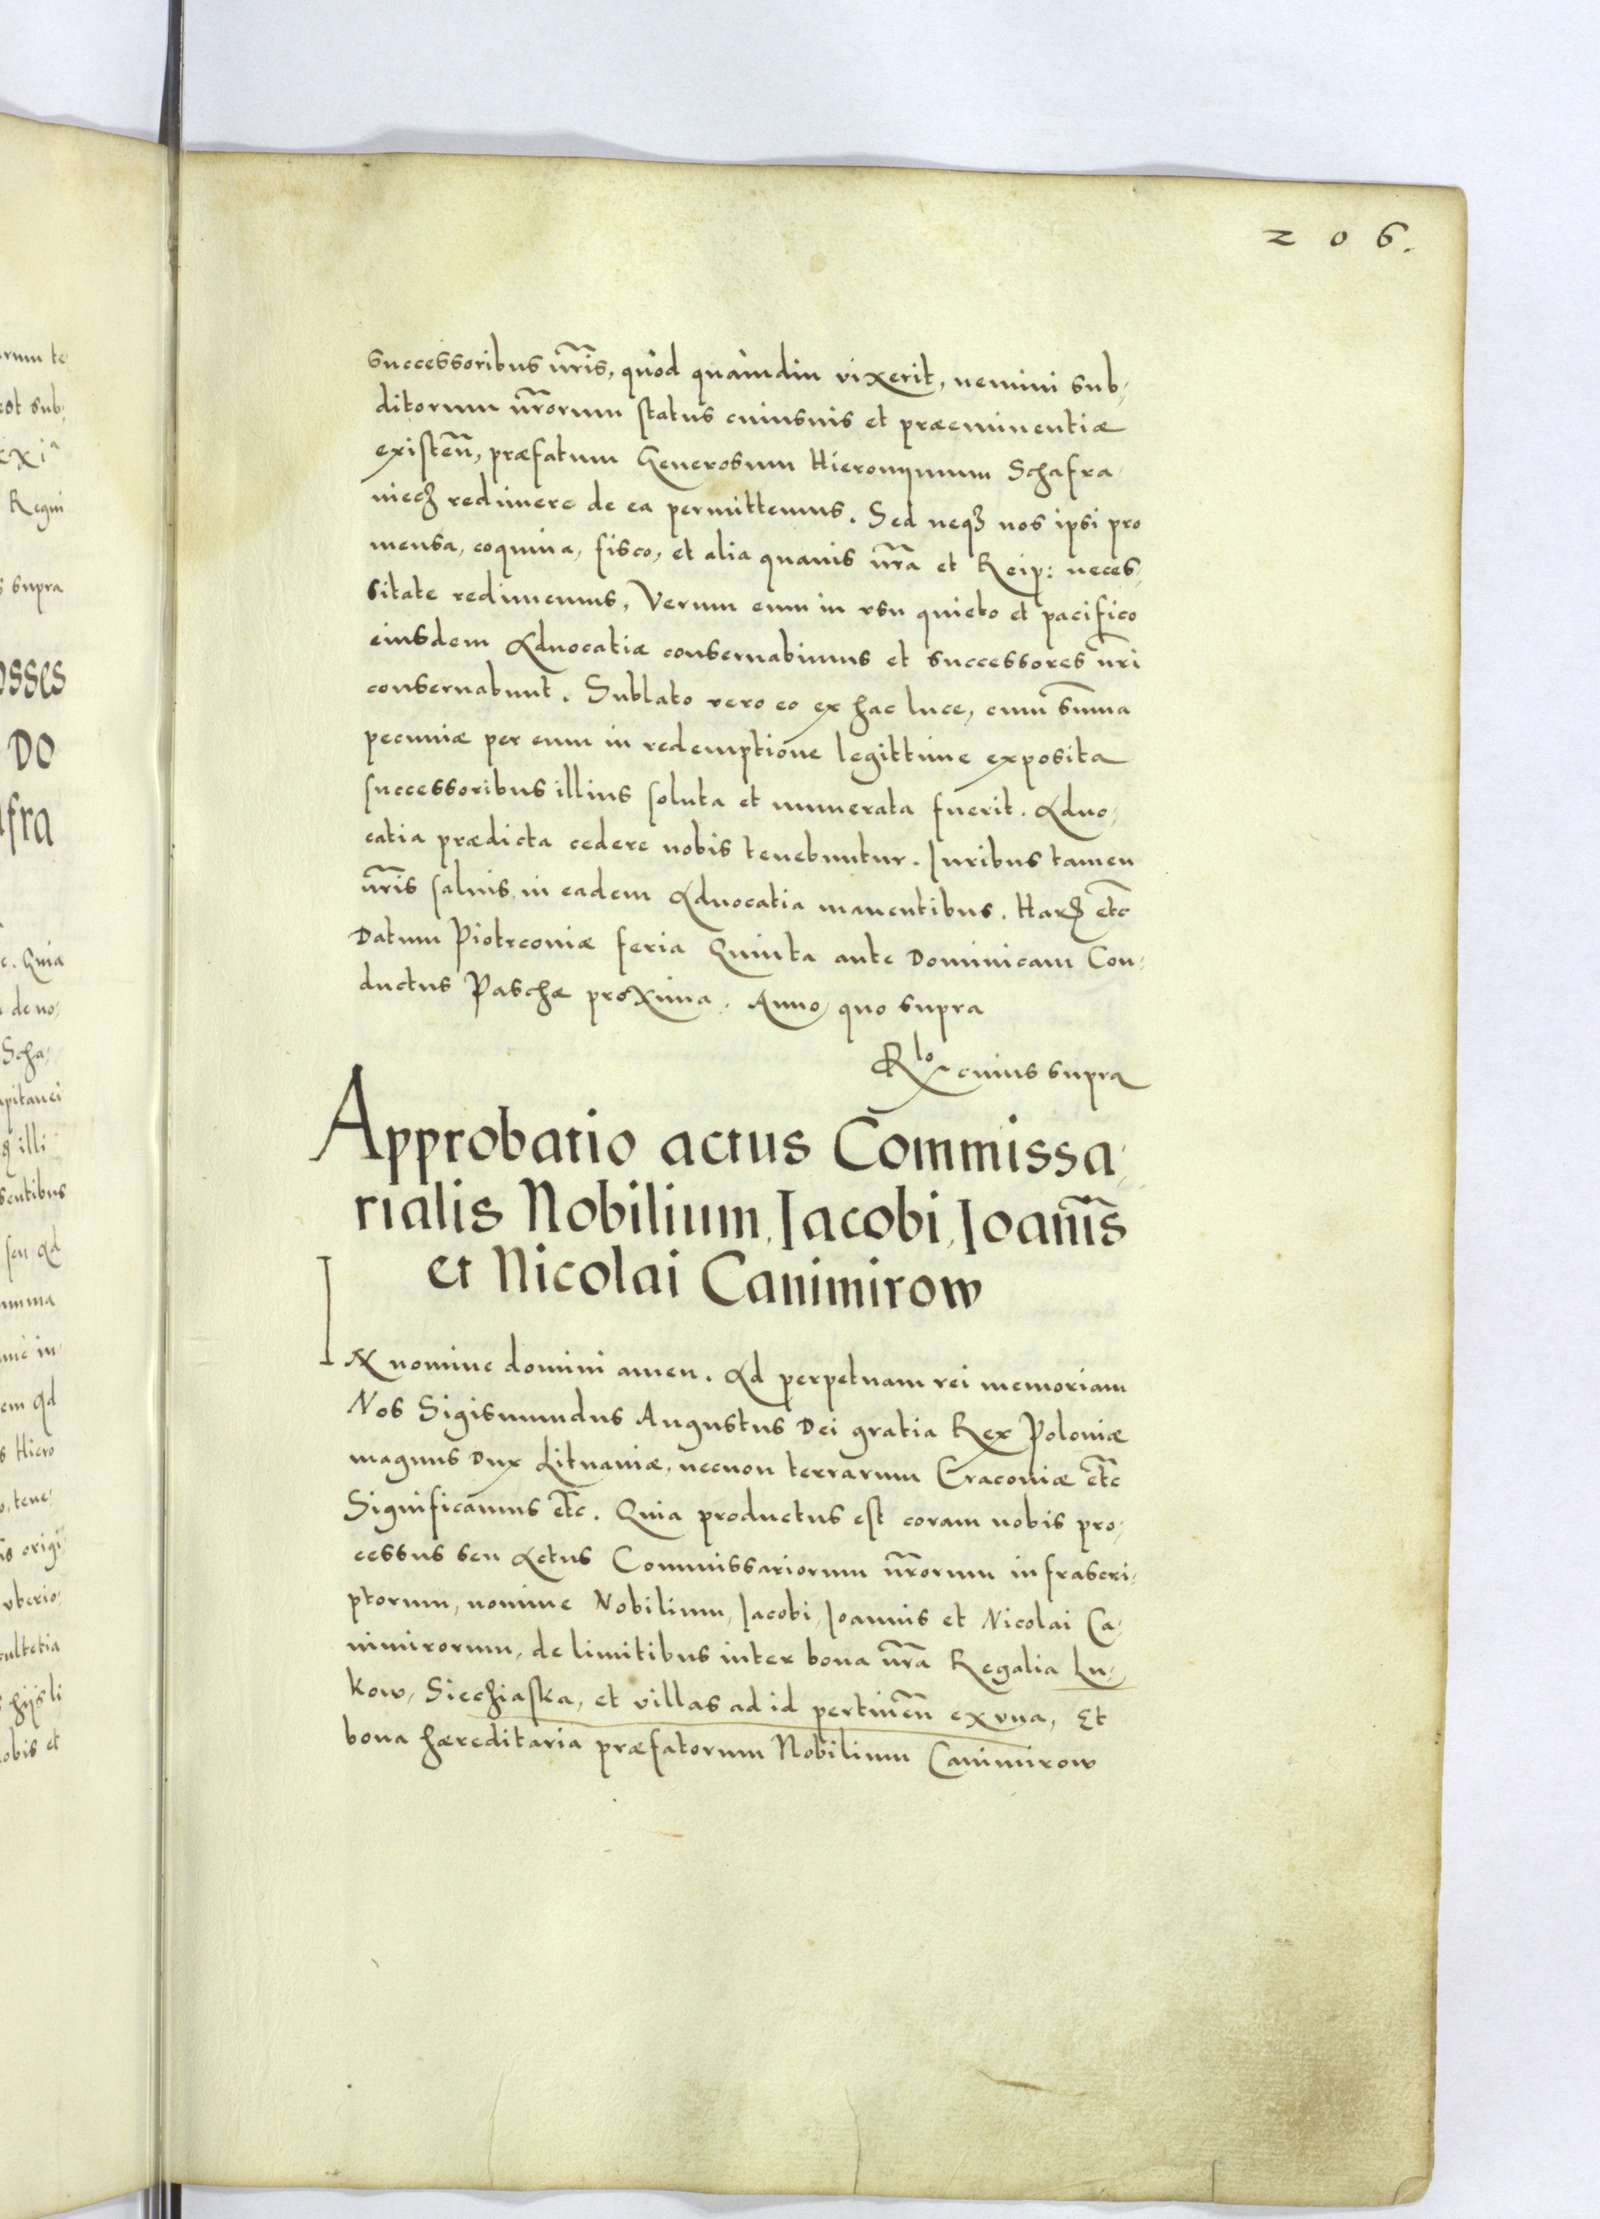 206.
successoribus nr̃is, quòd quàmdiu vixerit, nemini sub-
ditorum nr̃orum status cuiusuis et præeminentiæ
existeñ, præfatum Generosum Hieronymum Schafra-
niecz redimere de ea permittemus. Sed neqꝫ nos ipsi pro
mensa, coquina, fisco, et alia quauis nr̃a et Reip: neces-
sitate redimemus, Verum eum in vsu quieto et pacifico
eiusdem Aduocatiæ conseruabimus et successores nr̃i
conseruabunt. Sublato vero eo ex hac luce, cum sũma
pecuniæ per eum in redemptione legittime exposita
successoribus illius soluta et numerata fuerit. Aduo-
catia prædicta cedere nobis tenebuntur. Iuribus tamen
nr̃is saluis in eadem Aduocatia manentibus. Harꝫ etc̃
Datum Piotrcouiæ feria Quinta ante Dominicam Con-
ductus Paschæ proxima. Anno quo supra
Rlo cuius supra
Approbatio actus Commissa-
rialis Nobilium, Iacobi, Ioañis
et Nicolai Canimirow
IN nomine domini amen. Ad perpetuam rei memoriam
Nos Sigismundus Augustus Dei gratia Rex Poloniæ
magnus Dux Lituaniæ, necnon terrarum Cracouiæ etc̃
Significamus etc̃. Quia productus est coram nobis pro-
cessus seu Actus Commissariorum nr̃orum infrascri-
ptorum, nomine Nobilium, Iacobi, Ioannis et Nicolai Ca-
nimirorum, de limitibus inter bona nr̃a Regalia Lu-
kow, Siecziaska, et villas ad id pertineñ ex vna, Et
bona hæreditaria præfatorum Nobilium Canimirow